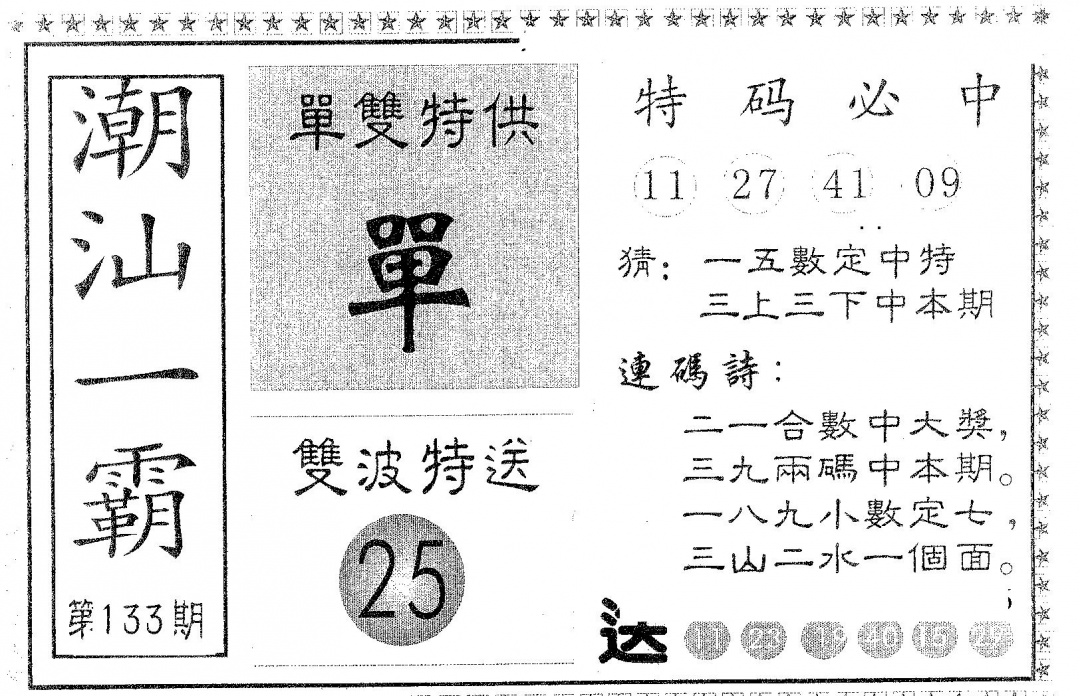 潮汕一霸
第133期
單雙特供
單
雙波特送
25
特码必中
11 27 41 09
猜：一五數定中特
三上三下中本期
連碼詩：
二一合數中大獎，
三九兩碼中本期。
一八九小數定七，
三山二水一個面。
送 11 23 19 40 15